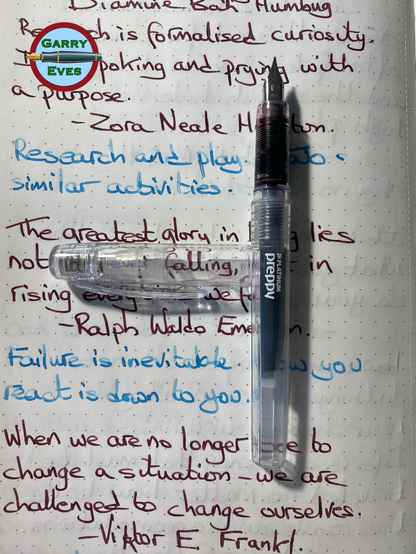 Diamine Bah Humbug
Research is formalised curiosity.
GARRY
EVES
poking and prying with
a purpose.
-Zora Neale
Research and play.
similar activities.
The greatest glory in lies
not falling, in
rising every we
-Ralph Waldo
PLATINUM
preppy
Failure is inevitable. you
react is down to you.
When we are no longer to
change a situation - we are
challenged to change ourselves.
-Viktor E. Frankl.